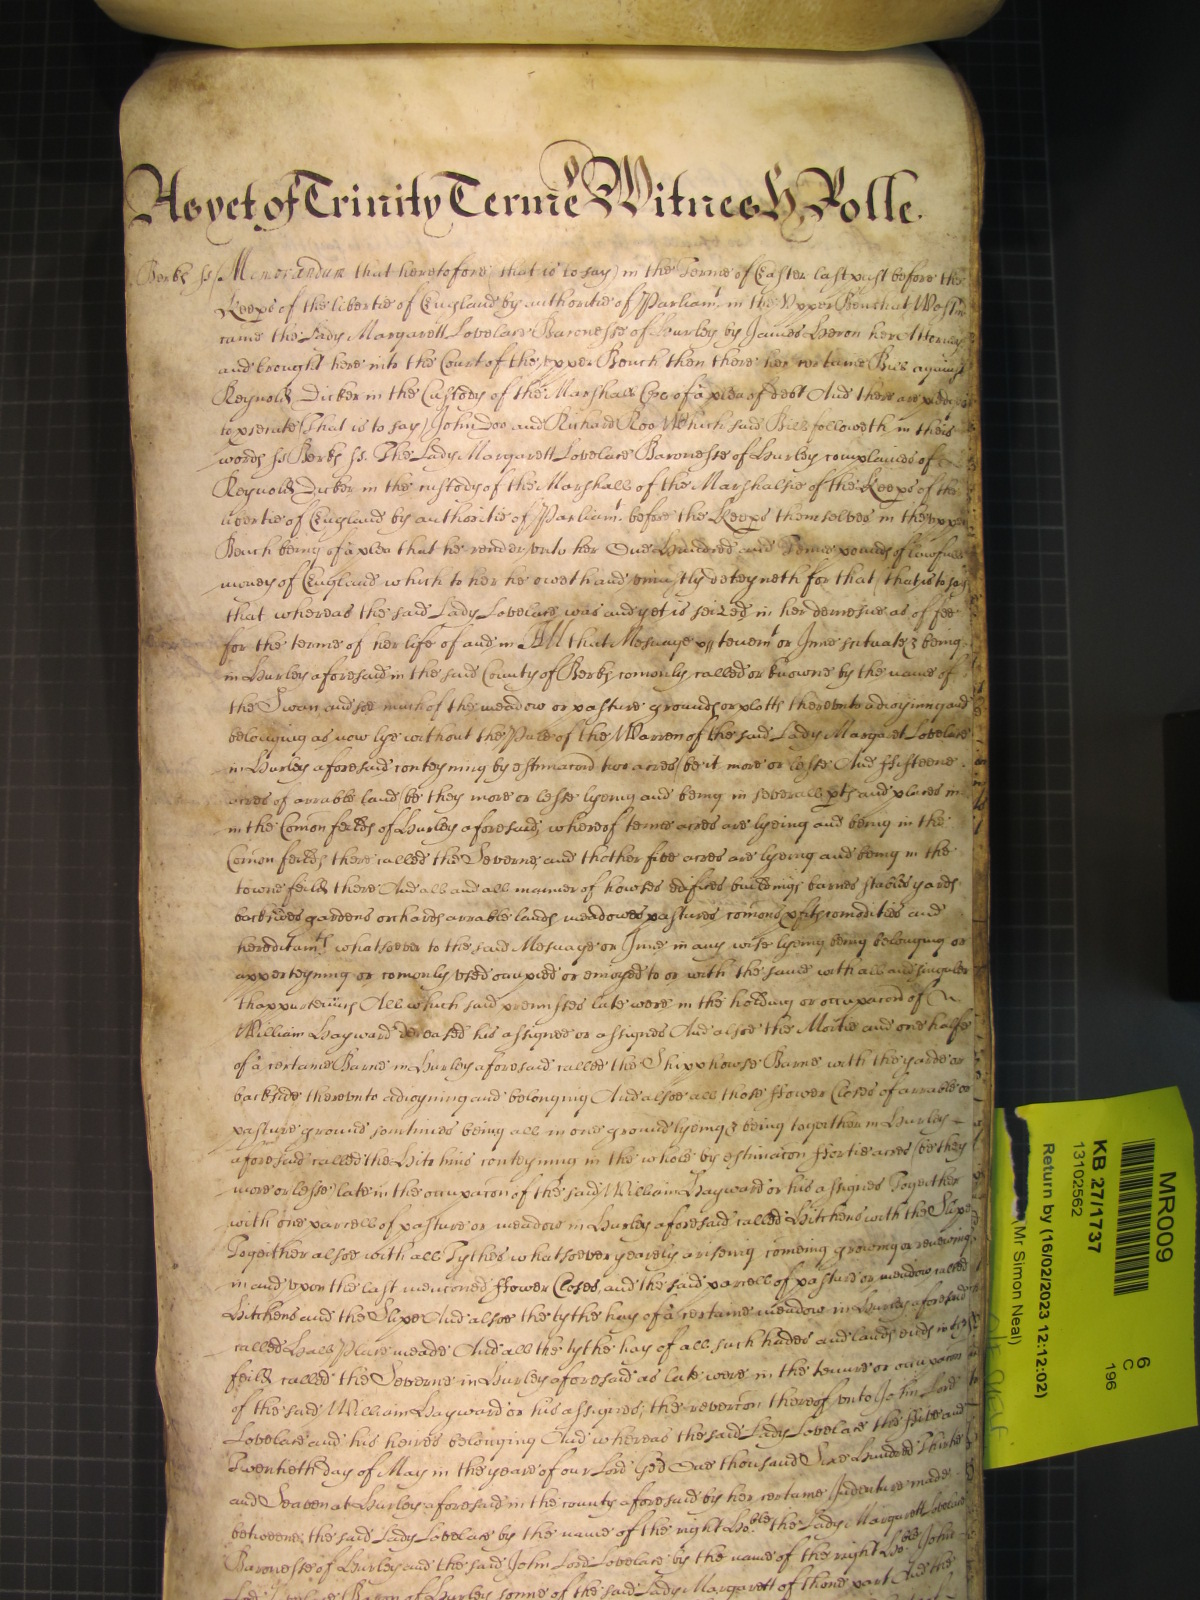 As yet of Trinity Terme Witnes H Rolle.
Berks ss. Memorandum that heretofore that is to say in the Terme of Easter last past before the
Keeps of the libertie of England by authoritie of Parliamt. in the Upper Bench at Westmr
came the Lady Margarett Lovelace Baronesse of Hurley by James Heron her Attorney
and brought here into the Court of the upper Bench then there her certaine Bill against
Reynold Dicker in the Custody of the Marshall &c of a plea of debt And there are pledges
to prosecute (that is to say) John Doo and Richard Roo Which said Bill followeth in theis
words ss Berks ss. The Lady Margarett Lovelace Baronesse of Hurley complaines of
Reynold Dicker in the custody of the Marshall of the Marshalsie of the Keeps of the
libertie of England by authoritie of Parliamt. before the Keeps themselves in the upper
Bench being of a plea that he render unto her One Hundred and Tenne pounds of lawfull
money of England which to her he oweth and uniustly deteyneth for that (that is to say)
that whereas the said Lady Lovelace was and yet is seized in her demesne as of fee
for the terme of her life of and in All that Mesuage or tenemt or Inne scituate & being
in Hurley aforesaid in the said County of Berks comonly called or knowne by the name of
the Swan and soe much of the meadow or pasture grounds or plotts thereunto adioyning and
belonging as now lye without the Pale of the Warren of the said Lady Margaret Lovelace
in Hurley aforesaid conteyning by estimacon two acres be it more or lesse And ffifteene
acres of arrable land be they more or lesse lyeing and being in severall pts and places in
in the Comon feilds of Hurley aforesaid, whereof tenne acres are lyeing and being in the
Comon feilds there called the Severne and thother five acres are lyeing and being in the
towne feild there And all and all manner of howses edifices buildings barnes stables yards
backsides gardens orchards arrable lands meadowes pastures comons pfitts comodities and
hereditamts whatsoever to the said Mesuage or Inne in any wise lyeing being belonging or
apperteyning or comonly used occupied or enioyed to or with the same with all and singuler
thappurtenncs All which said premisses late were in the holding or occupacon of
William Hayward deceased his assignee or assignes And alsoe the Moitie and one halfe
of a certaine Barne in Hurley aforesaid called the Shipphowse Barne with the yarde or
backside thereunto adioyning and belonging And alsoe all those ffower Closes of arrable or
pasture ground somtimes being all in one ground lyeing & being together in Hurley
aforesaid called the Hitchins conteyning in the whole by estimacon ffortie acres (be they
more or lesse) late in the occupacon of the said William Hayward or his assignes Together
with one parcell of pasture or meadow in Hurley aforesaid called Hitchens with the Slipe
Together alsoe with all Tythes whatsoever yearely ariseing comeing growing or renewing
in and upon the last mencioned ffower Closes, and the said parcell of pasture or meadow called
Hitchens and the Slipe And alsoe the tythe hay of a certaine meadow in Hurley aforesaid
called Hall Place meade And all the tythe hay of all such hades and lands ends in the
feild called the Severne in Hurley aforesaid as late were in the tenure or occupacon
of the said William Hayward or his assignes; the revercon thereof unto John Lord
Lovelace and his heires belonging And whereas the said Lady Lovelace the ffive and
Twentieth day of May in the yeare of our Lord God One thousand Six Hundred Thirtie
and Seaven at Hurley aforesaid in the county aforesaid by her certaine Indenture made
betweene the said Lady Lovelace by the name of the right Hoble the Lady Margarett Lovelace
Baronesse of Hurley and the said John Lord Lovelace by the name of the right Hoble John
Lord Lovelace Baron of Hurley sonne of the said Lady Margarett of thone part And the
MR009
6
C
196
KB 27/1737
13102562
Return by (16/02/2023 12:12:02)
Mr Simon Neal)